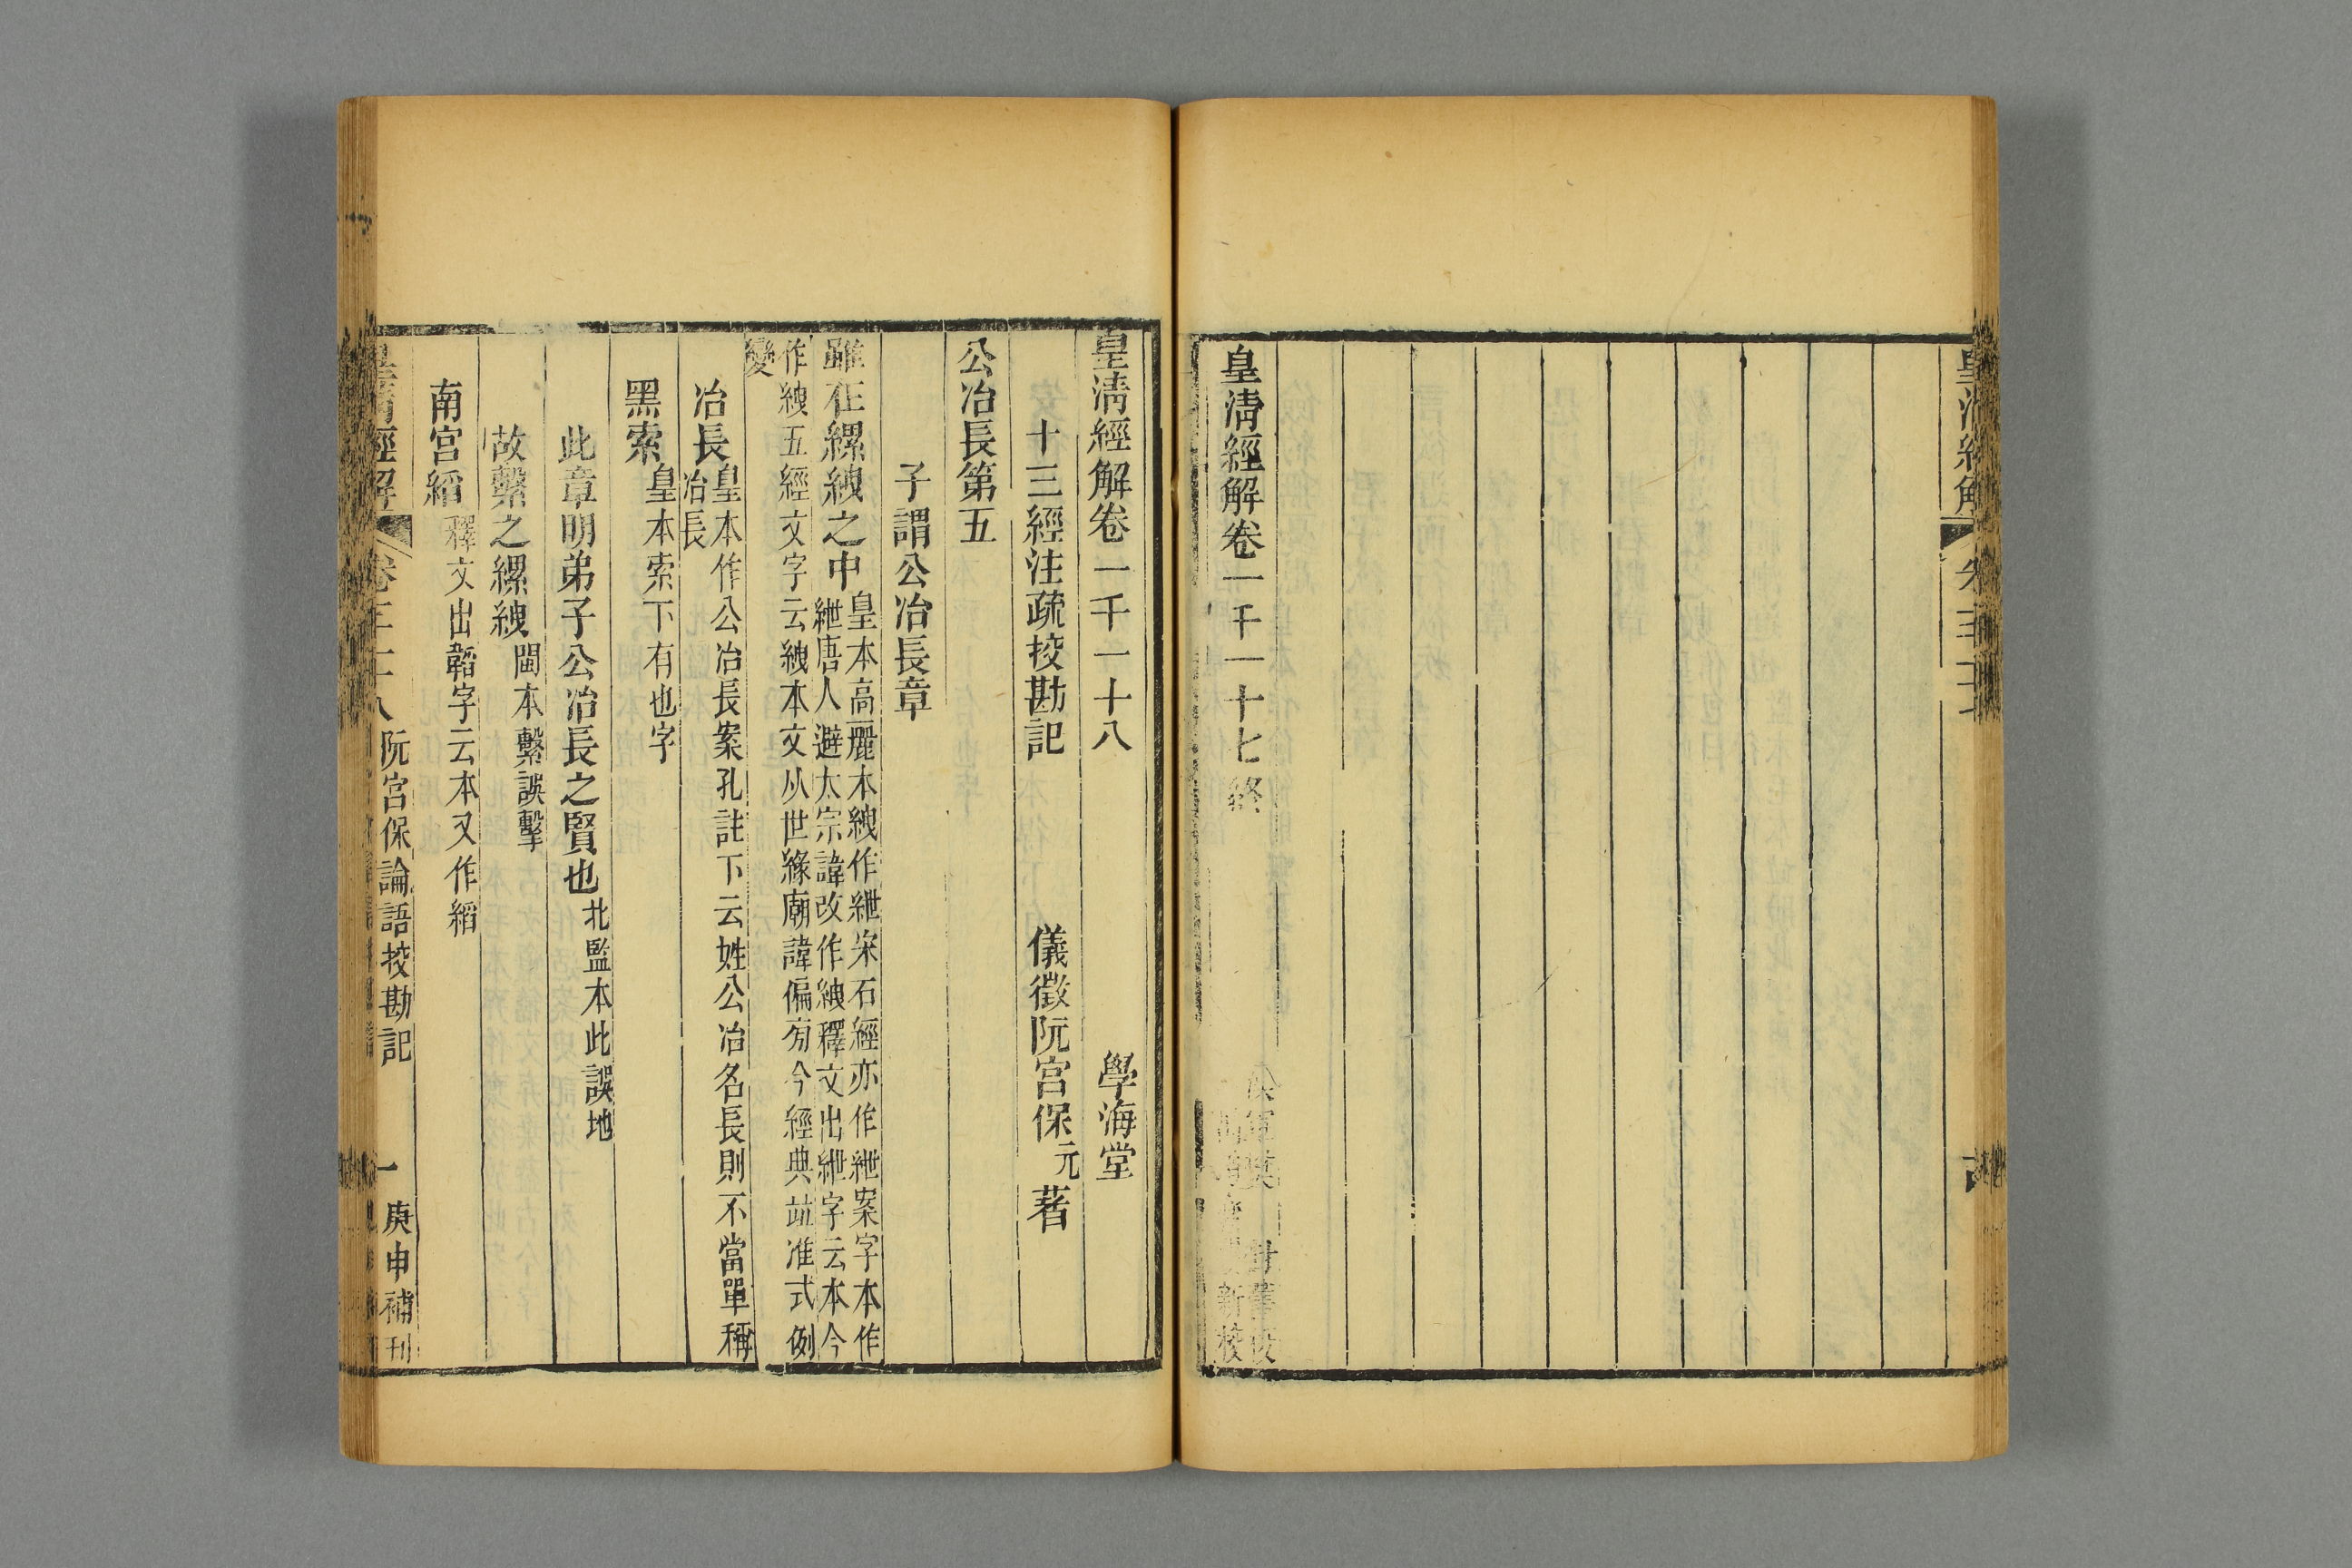 皇清經解卷一千一十七終
新校
皇清經解卷一千一十八
學海堂
十三經注疏挍勘記
儀徵阮宮保元著
公冶長第五
子謂公冶長章
雖在縲絏之中
皇本高麗本絏作紲宋石經亦作紲案字本作
紲唐人避太宗諱改作絏釋文出紲字云本今
作絏五經文字云絏本文从世緣廟諱偏旁今經典竝准式例
變
冶長
皇本作公冶長案孔註下云姓公冶名長則不當單稱
冶長
黑索
皇本索下有也字
此章明弟子公冶長之賢也
北監本此誤地
故繫之縲絏
閩本繫誤擊
南宮縚
釋文出韜字云本又作縚
皇清經解
阮宮保論語挍勘記
一
庚申補刊